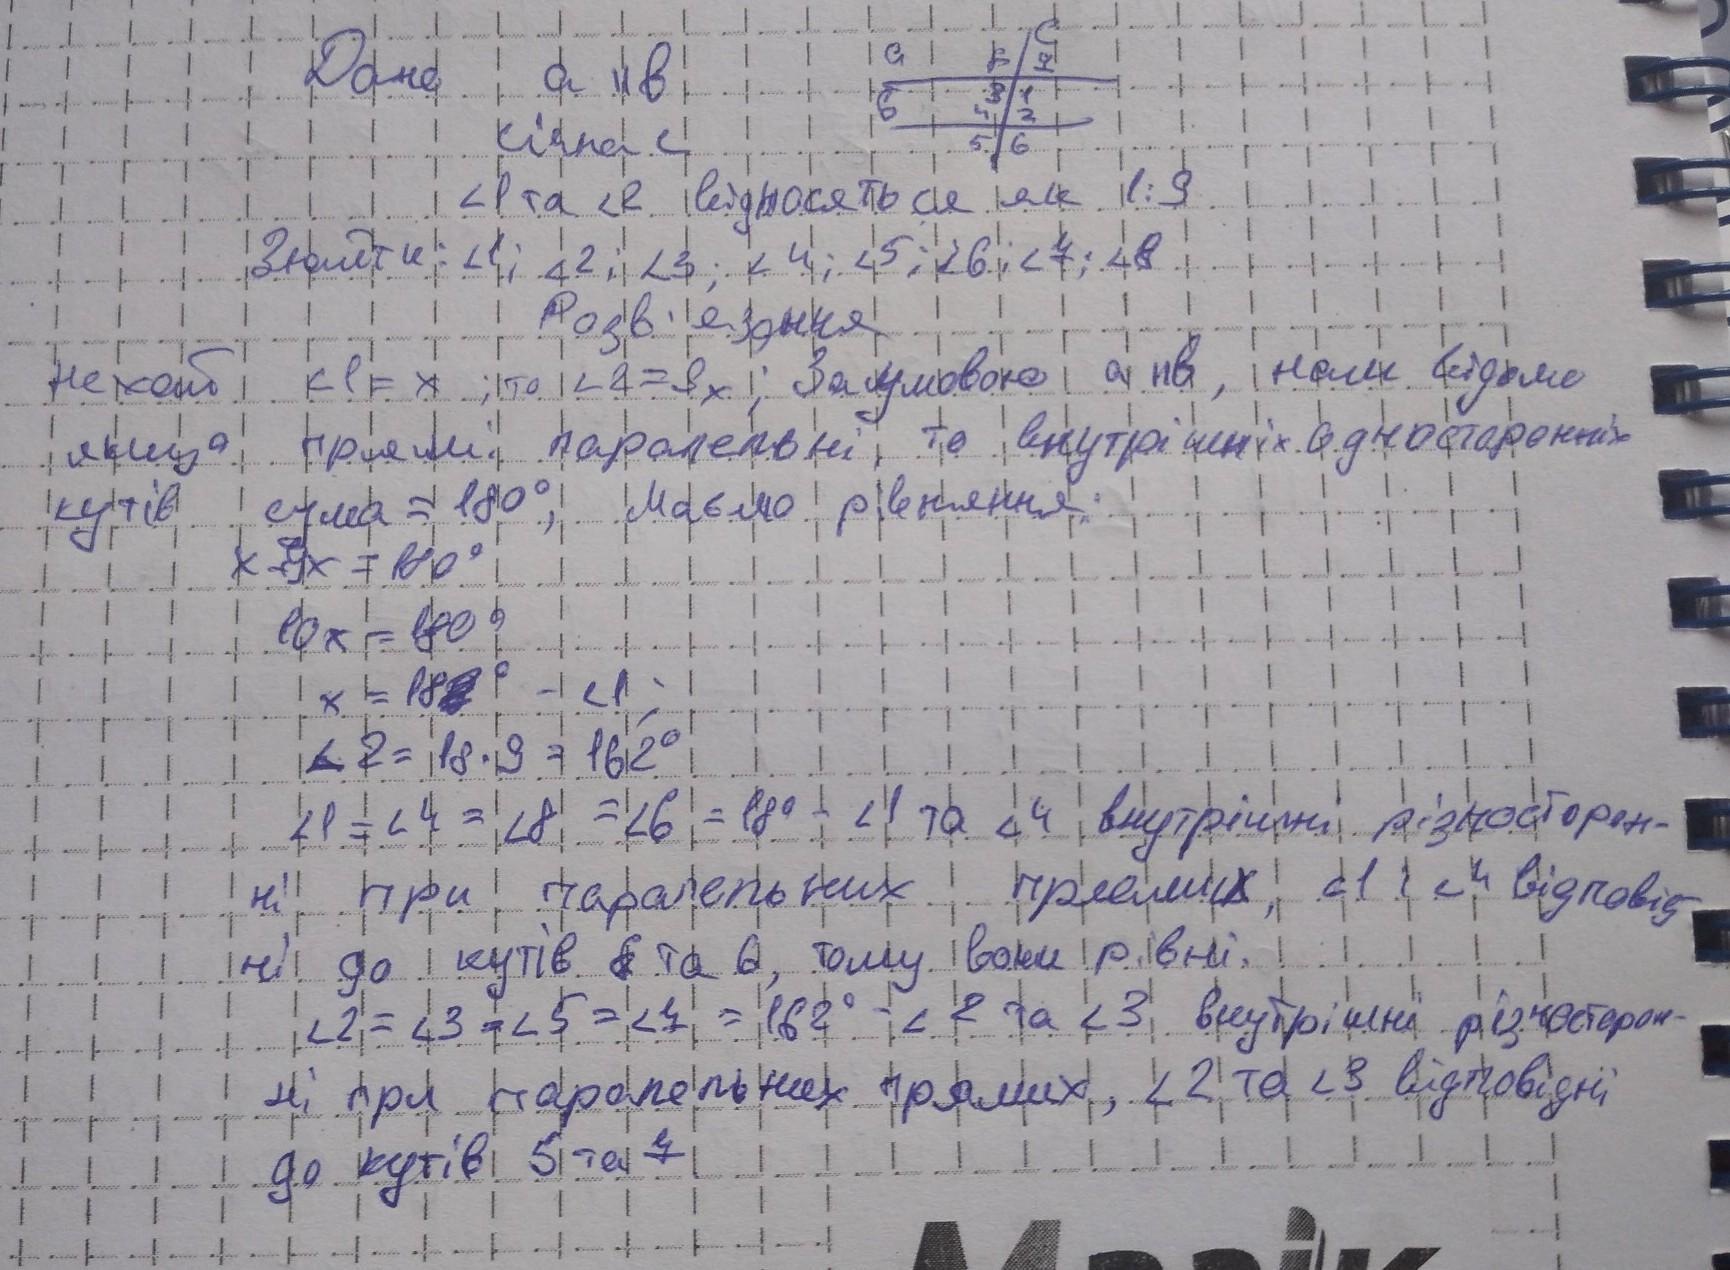 Дано a ıı в
січна с
a
в
с
8 7
3 1
4 2
5 6
∠1 та ∠2 відносяться як 1:9
Знайти: ∠1; ∠2; ∠3; ∠4; ∠5; ∠6; ∠7; ∠8
Розв'язання
нехай ∠1 = x ; то ∠2 = 9x ; За умовою a ıı в, нам відомо
якщо прямі паралельні, то внутрішніх односторонніх
кутів сума = 180°; Маємо рівняння:
x + 9x = 180°
10x = 180°
x = 18° - ∠1;
∠2 = 18 · 9 = 162°
∠1 = ∠4 = ∠8 = ∠6 = 18° - ∠1 та ∠4 внутрішні різносторон-
ні при паралельних прямих, ∠1 і ∠4 відповід
ні до кутів 8 та 6, тому вони рівні.
∠2 = ∠3 = ∠5 = ∠7 = 162° - ∠2 та ∠3 внутрішні різносторон-
ні при паралельних прямих, ∠2 та ∠3 відповідні
до кутів 5 та 7